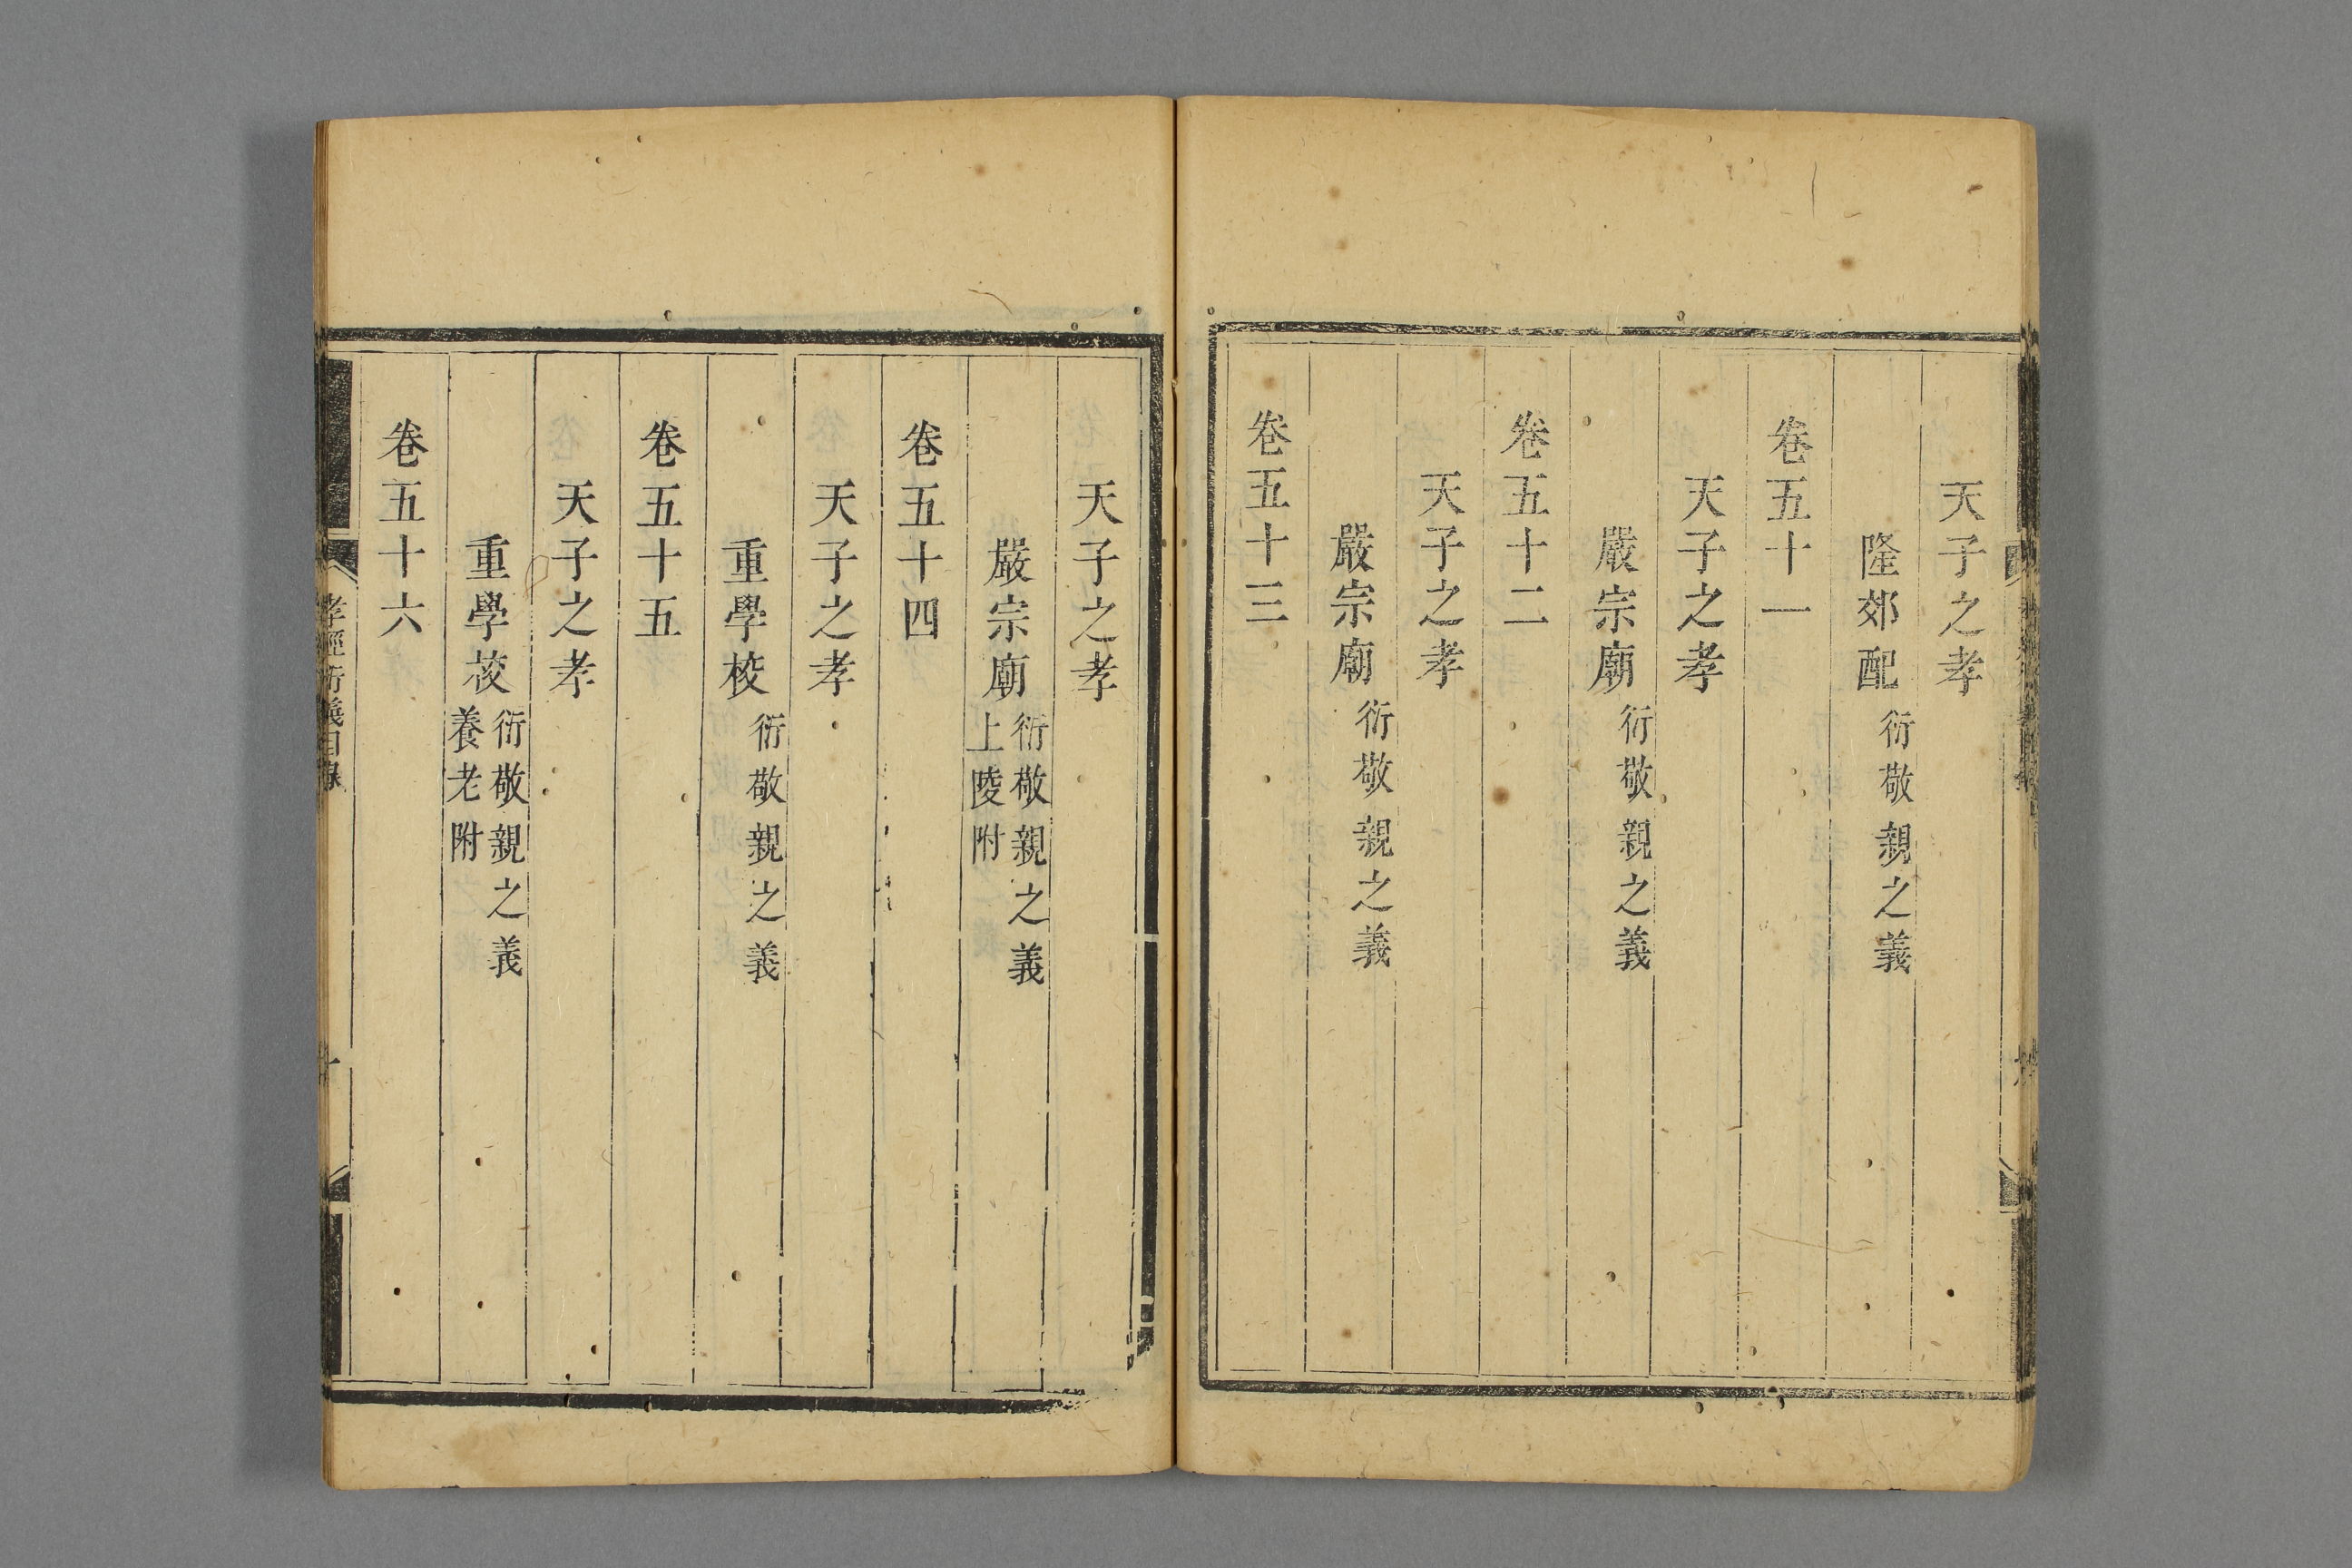 天子之孝
隆郊配衍敬親之義
卷五十一
天子之孝
嚴宗廟衍敬親之義
卷五十二
天子之孝
嚴宗廟衍敬親之義
卷五十三
天子之孝
嚴宗廟衍敬親之義
上陵附
卷五十四
天子之孝
重學校衍敬親之義
卷五十五
天子之孝
重學校衍敬親之義
養老附
卷五十六
孝經衍義目錄